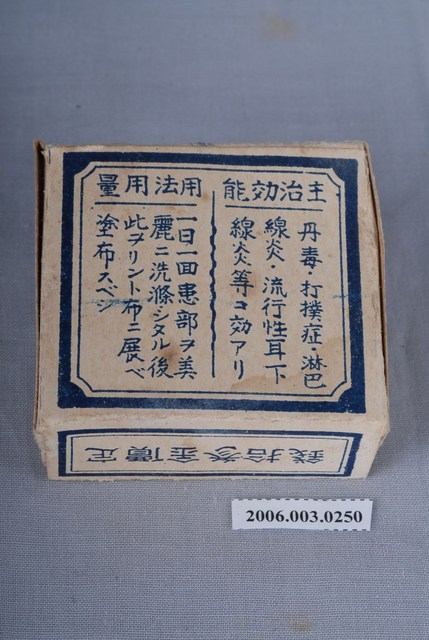 主治効能
丹毒・打撲症・淋巴
線炎・流行性耳下
線炎等ニ効アリ
用法用量
一日一回患部ヲ美
麗ニ洗滌シタル後
此ヲリント布ニ展べ
塗布スベシ
定價金參拾錢
2006.003.0250